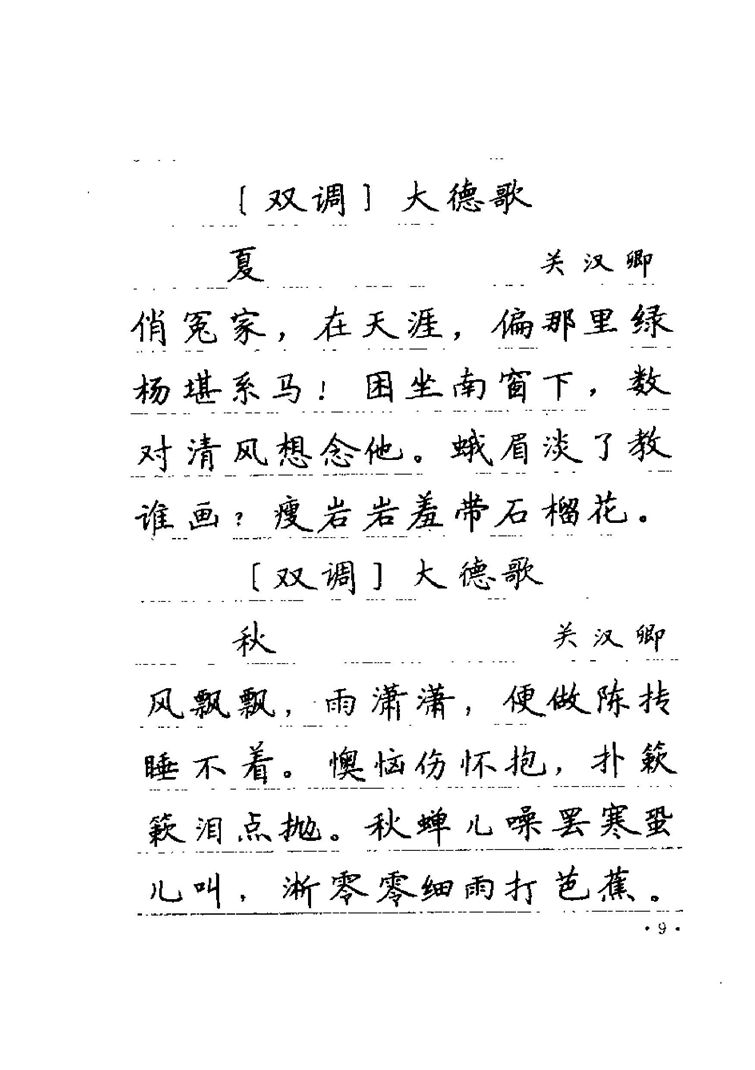 〔双调〕大德歌
夏 关汉卿
俏冤家，在天涯，偏那里绿
杨堪系马！困坐南窗下，数
对清风想念他。蛾眉淡了教
谁画？瘦岩岩羞带石榴花。
〔双调〕大德歌
秋 关汉卿
风飘飘，雨潇潇，便做陈抟
睡不着。懊恼伤怀抱，扑簌
簌泪点抛。秋蝉儿噪罢寒蛩
儿叫，淅零零细雨打芭蕉。
·9·